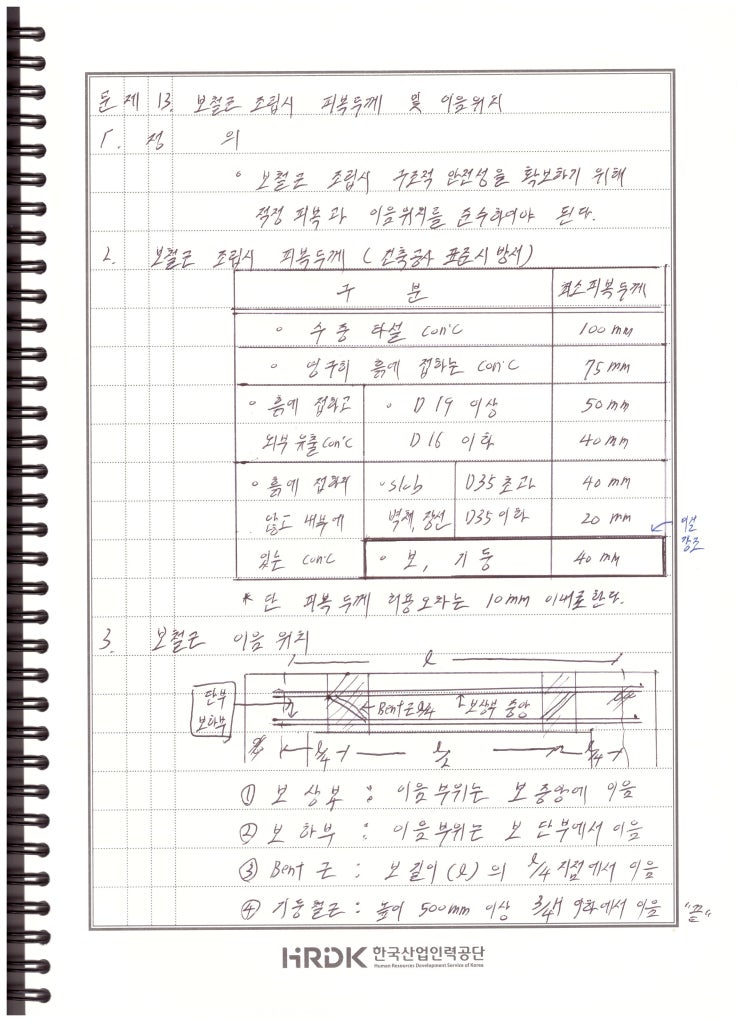 문제 13. 보철근 조립시 피복두께 및 이음위치
1. 정 의
◦ 보철근 조립시 구조적 안전성을 확보하기 위해
적정 피복과 이음위치를 준수하여야 된다.
2. 보철근 조립시 피복두께 (건축공사 표준시방서)
구 분 최소피복두께
◦ 수중 타설 con'c 100mm
◦ 영구히 흙에 접하는 con'c 75mm
◦ 흙에 접하고 ◦ D19 이상 50mm
외부 유출 con'c D16 이하 40mm
◦ 흙에 접하지 ◦ slab D35초과 40mm
않고 내부에 벽체, 장선 D35이하 20mm
있는 con'c ◦ 보, 기둥 40mm
강조
* 단 피복두께 허용오차는 10mm 이내로 한다.
3. 보철근 이음위치
ℓ
단부
보하부
Bent근 ℓ/4
보상부 중앙
ℓ/4 ℓ/2 ℓ/4
① 보 상부 : 이음부위는 보 중앙에 이음
② 보 하부 : 이음부위는 보 단부에서 이음
③ Bent 근 : 보 길이(ℓ)의 ℓ/4 지점에서 이음
④ 기둥철근 : 높이 500mm 이상 3/4H 이하에서 이음 "끝"
HRDK 한국산업인력공단
Human Resources Development Service of Korea